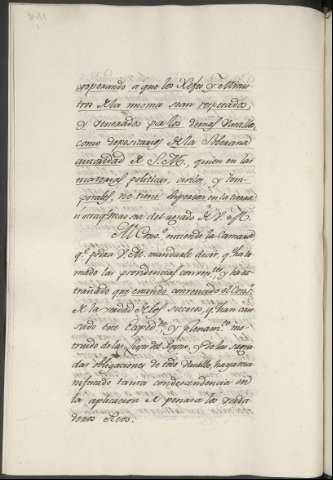 cooperando a que los Xefes, y Minis-
tros de la misma sean respetados,
y venerados por los demas Vasallos,
como depositarios de la Soberana
autoridad de S. M., quien en las
materias politicas, civiles, y tem-
porales, no tiene Superior en la tierra
del agrado de V. M.
El Cons.º
q.e pide a V. M. mandarle decir, q.e ha to-
mado las providencias conven.tes y ha es-
trañado que estando convencido el Cons.º
de la verdad de los sucesos, q.e han cau-
sado este Exped.te, y plenam.te ins-
truido de las Leyes del Reyno, y de las sagra-
das obligaciones de todo Vasallo, haya ma-
nifestado tanta condescendencia en
la aplicacion de penas a los verda-
deros Reos.